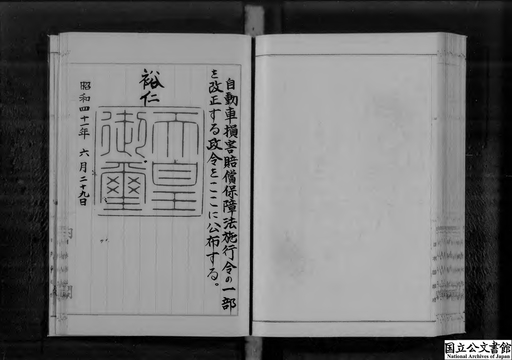 自動車損害賠償保障法施行令の一部
を改正する政令をここに公布する。
裕仁
天皇
御璽
昭和四十一年 六月二十九日
国立公文書館
National Archives of Japan